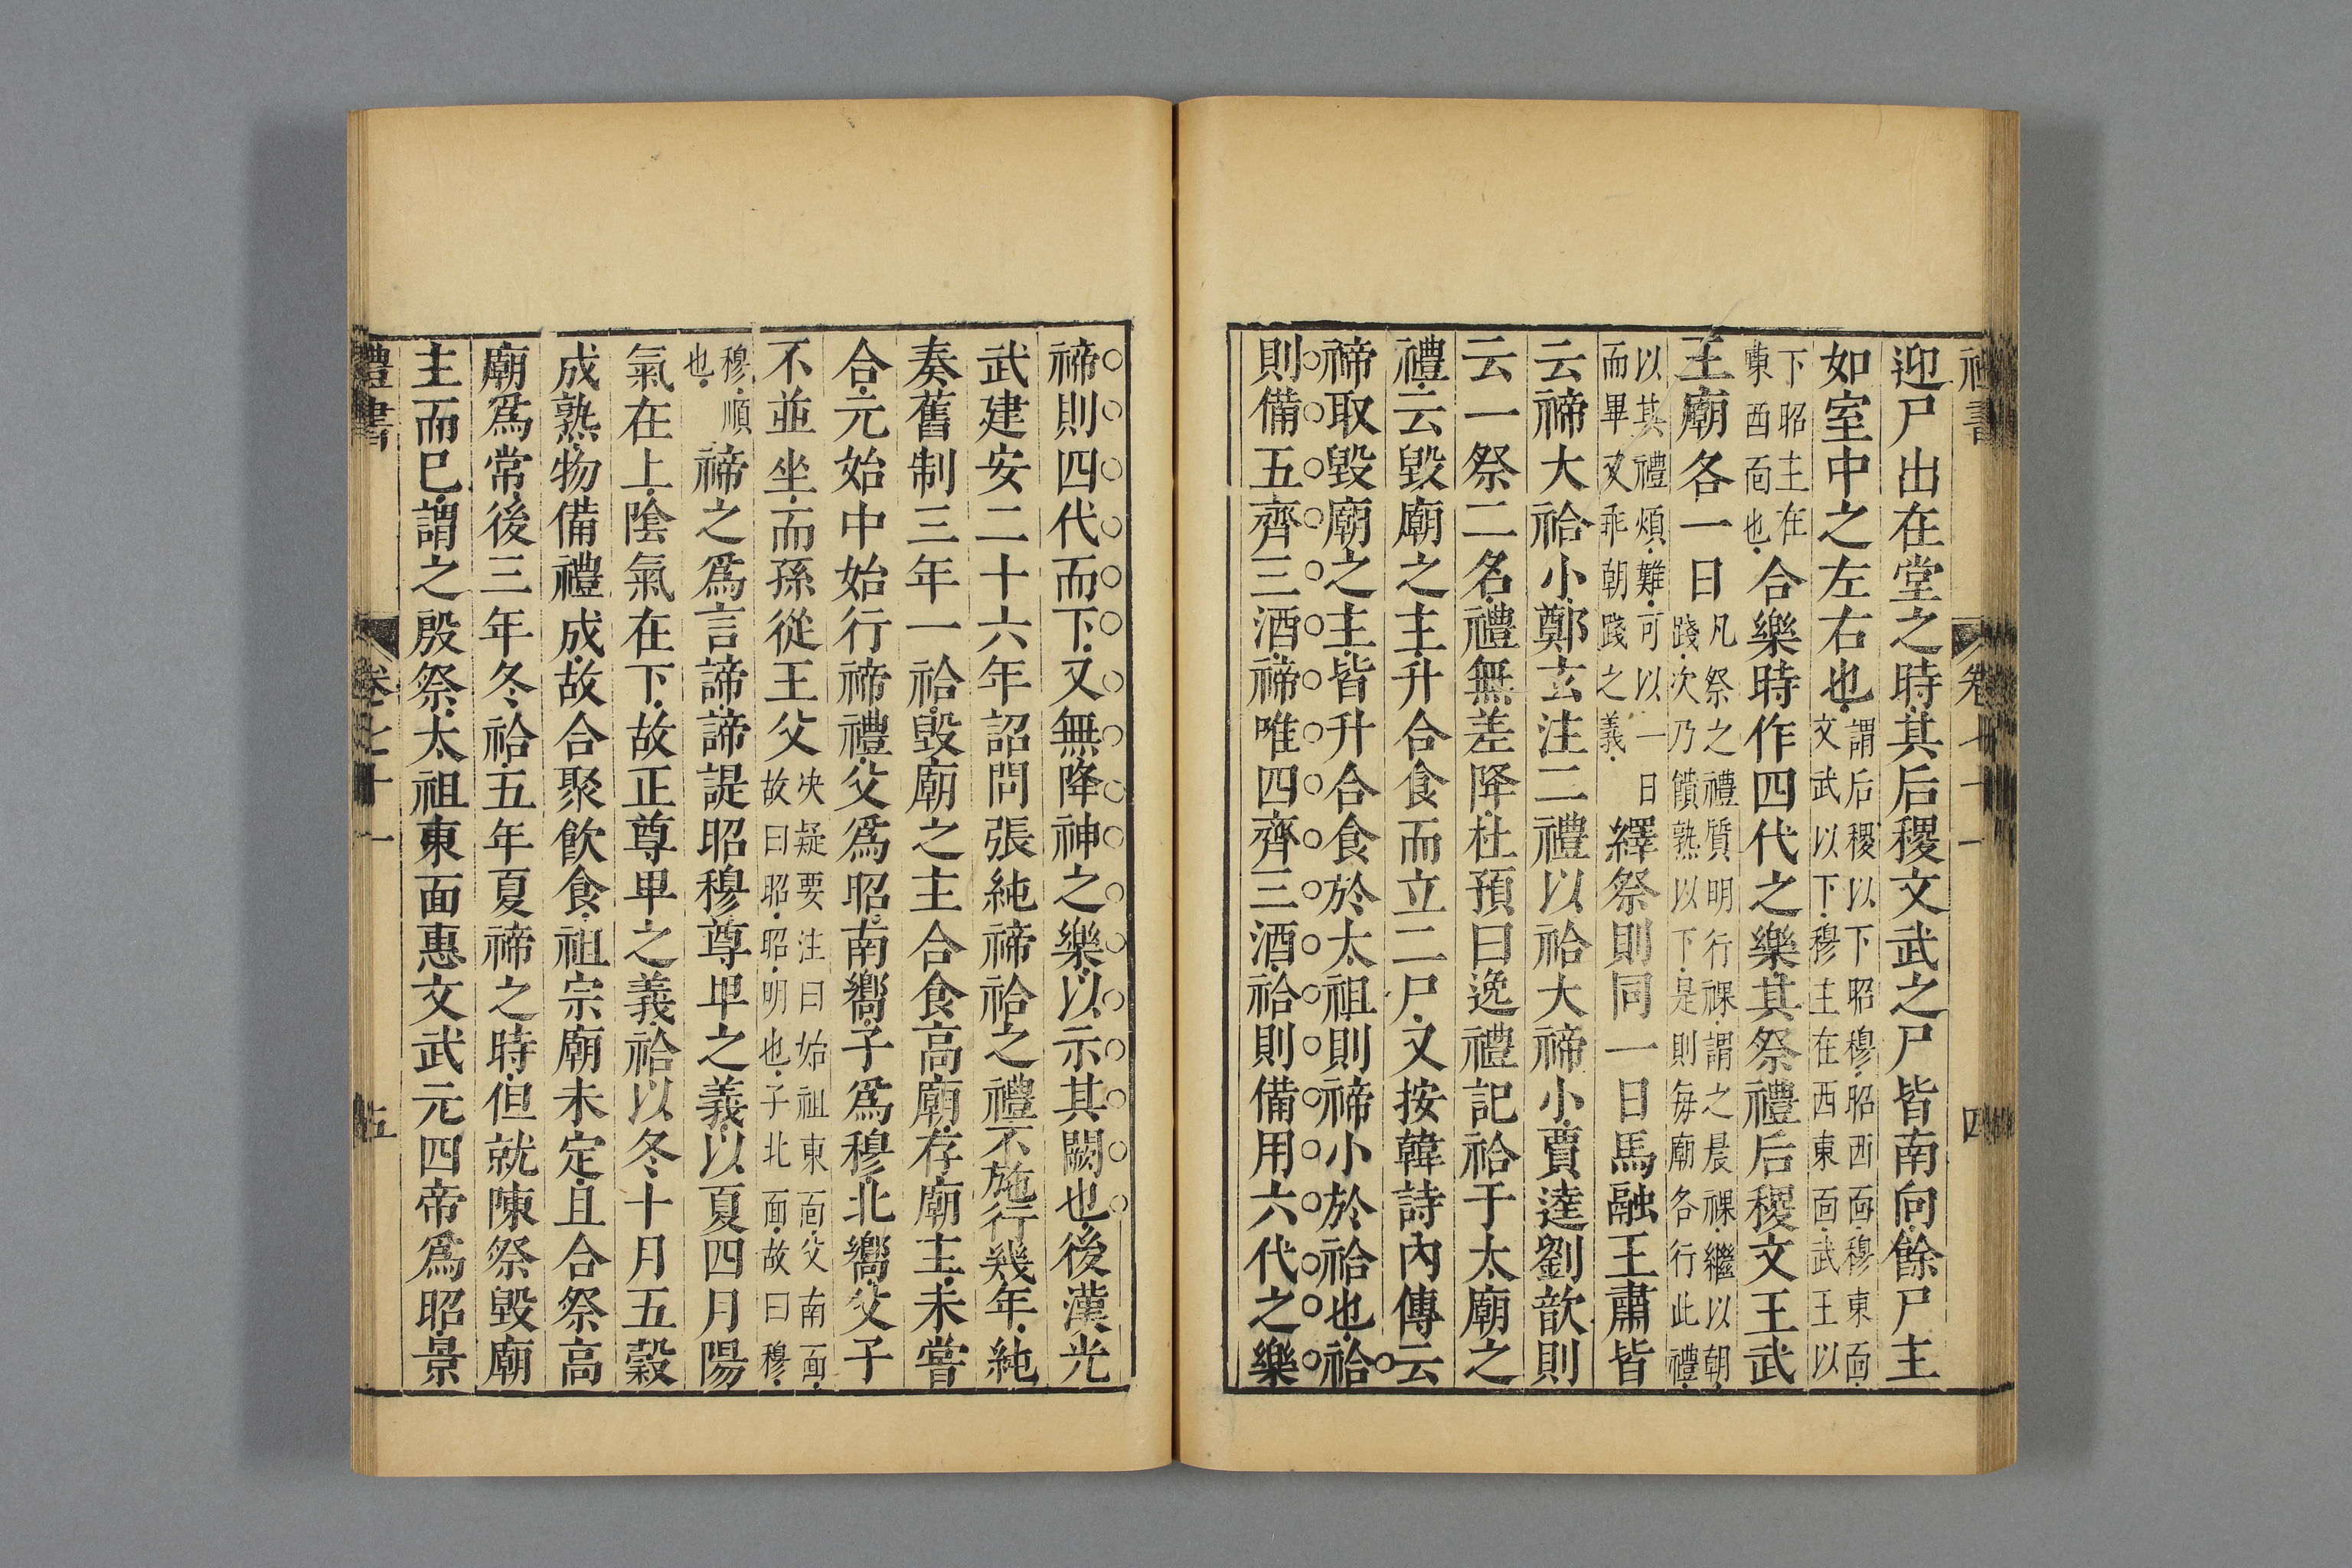 禮書 卷七十一 四
迎尸出在堂之時其后稷文武之尸皆南向餘尸主
如室中之左右也謂后稷以下昭穆昭西面穆東面文武以下穆主在西東面武王以
下昭主在東西面也合樂時作四代之樂其祭禮后稷文王武
王廟各一日凡祭之禮質明行祼謂之晨祼繼以朝踐次乃饋熟以下是則每廟各行此禮
以其禮煩難可以一日而畢又乖朝踐之義繹祭則同一日馬融王肅皆
云禘大祫小鄭玄注二禮以祫大禘小賈逵劉歆則
云一祭二名禮無差降杜預曰逸禮記祫于太廟之
禮云毀廟之主升合食而立二尸又按韓詩內傳云
禘取毀廟之主皆升合食於太祖則禘小於祫也祫
則備五齊三酒禘唯四齊三酒祫則備用六代之樂
禘則四代而下又無降神之樂以示其闕也後漢光
武建安二十六年詔問張純禘祫之禮不施行幾年純
奏舊制三年一祫毀廟之主合食高廟存廟主未嘗
合元始中始行禘禮父爲昭南嚮子爲穆北嚮父子
不並坐而孫從王父決疑要注曰始祖東面父南面故曰昭昭明也子北面故曰穆
穆順也禘之爲言諦諦諟昭穆尊卑之義以夏四月陽
氣在上陰氣在下故正尊卑之義祫以冬十月五穀
成熟物備禮成故合聚飮食祖宗廟未定且合祭高
廟爲常後三年冬祫五年夏禘之時但就陳祭毀廟
主而已謂之殷祭太祖東面惠文武元四帝爲昭景
禮書 卷七十一 五